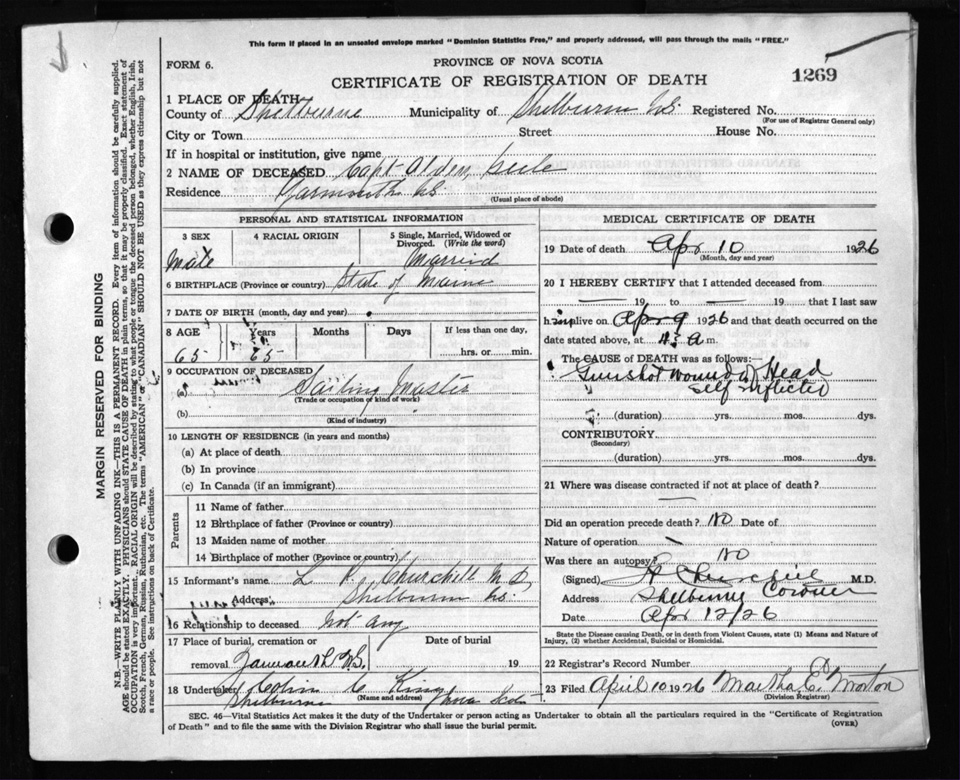 This form if placed in an unsealed envelope marked "Dominion Statistics Free," and properly addressed, will pass through the mails "FREE."
FORM 6.
PROVINCE OF NOVA SCOTIA
CERTIFICATE OF REGISTRATION OF DEATH
1269
1 PLACE OF DEATH
County of Shelburne Municipality of Shelburne N.S. Registered No.
(For use of Registrar General only)
City or Town Street House No.
If in hospital or institution, give name
2 NAME OF DECEASED Capt Alden
Residence Yarmouth N.S.
(Usual place of abode)
PERSONAL AND STATISTICAL INFORMATION
3 SEX 4 RACIAL ORIGIN 5 Single, Married, Widowed or Divorced. (Write the word)
Male Married
6 BIRTHPLACE (Province or country) State of Maine
7 DATE OF BIRTH (month, day and year)
8 AGE Years Months Days If less than one day,
65 65 hrs. or min.
9 OCCUPATION OF DECEASED
(a) Sailing Master
(Trade or occupation or kind of work)
(b)
(Kind of industry)
10 LENGTH OF RESIDENCE (in years and months)
(a) At place of death
(b) In province
(c) In Canada (if an immigrant)
Parents
11 Name of father
12 Birthplace of father (Province or country)
13 Maiden name of mother
14 Birthplace of mother (Province or country)
15 Informant's name L. P. Churchill M.D.
Address Shelburne N.S.
16 Relationship to deceased not any
17 Place of burial, cremation or Date of burial
removal Yarmouth N.S. 19
18 Undertaker Colin C King
(Name and address)
Shelburne Nova Scotia
MEDICAL CERTIFICATE OF DEATH
19 Date of death Apr 10 1926
(Month, day and year)
20 I HEREBY CERTIFY that I attended deceased from
19 to 19 that I last saw
h im alive on Apr 9 1926 and that death occurred on the
date stated above, at a m.
The CAUSE OF DEATH was as follows:
Gunshot wound of Head
Self inflicted
(duration) yrs. mos. dys.
CONTRIBUTORY
(Secondary)
(duration) yrs. mos. dys.
21 Where was disease contracted if not at place of death?
Did an operation precede death? No Date of
Nature of operation
Was there an autopsy? No
(Signed) Churchill M.D.
Address Shelburne Coroner
Date Apr 12/26
State the Disease causing Death, or in death from Violent Causes, state (1) Means and Nature of
Injury, (2) whether Accidental, Suicidal or Homicidal.
22 Registrar's Record Number
23 Filed April 10 1926 Martha E. Morton
(Division Registrar)
SEC. 46—Vital Statistics Act makes it the duty of the Undertaker or person acting as Undertaker to obtain all the particulars required in the "Certificate of Registration
of Death" and to file the same with the Division Registrar who shall issue the burial permit. (OVER)
MARGIN RESERVED FOR BINDING
N.B.—WRITE PLAINLY WITH UNFADING INK—THIS IS A PERMANENT RECORD. Every item of information should be carefully supplied.
AGE should be stated EXACTLY. PHYSICIANS should STATE CAUSE OF DEATH in plain terms, so that it may be properly classified. Exact statement of
OCCUPATION is very important. RACIAL ORIGIN will be described by stating to what people or tongue the deceased person belonged, whether English, Irish,
Scotch, French, German, Russian, Ruthenian, etc. The terms "AMERICAN" or "CANADIAN" SHOULD NOT BE USED as they express citizenship but not
a race or people. See instructions on back of Certificate.